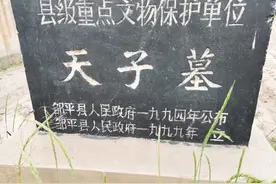 县级重点文物保护单位
天子墓
邹平县人民政府一九九四年公布
邹平县人民政府一九九九年 立